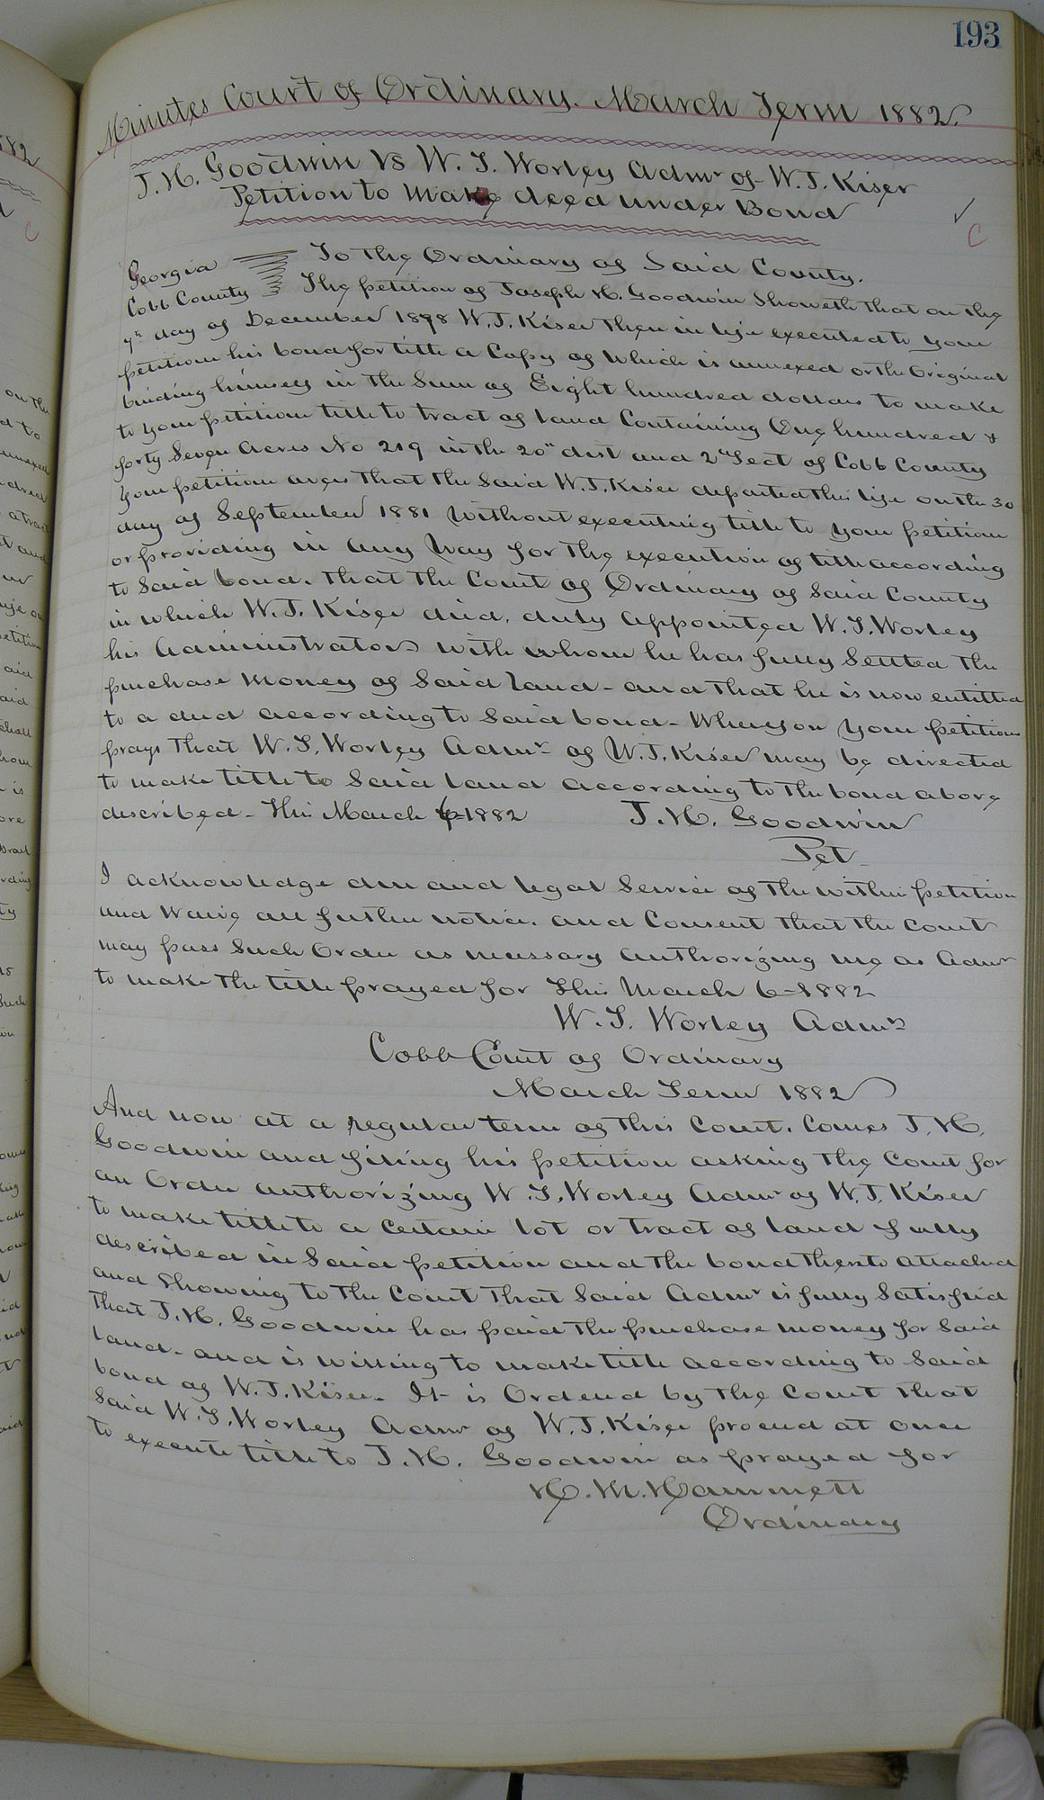 193
Minutes Court of Ordinary. March Term 1882.
J. H. Goodwin vs W. J. Worley Admr of W. J. Kiser
Petition to Make deed under Bond
Georgia To the Ordinary of Said County.
Cobb County The petition of Joseph H. Goodwin Showeth that on the
7th day of December 1878 W. J. Kiser then in life executed to your
petition his bond for title a Copy of which is annexed or the Original
binding himself in the Sum of Eight hundred dollars to make
to your petition title to tract of land Containing One hundred &
forty Seven Acres No 219 in the 20th dist and 2nd Sect of Cobb County
Your petition avers that the Said W. J. Kiser departed this life on the 30
day of September 1881 without executing title to your petition
or providing in any way for the execution of title according
to Said bond. that the Court of Ordinary of Said County
in which W. J. Kiser died, duly appointed W. J. Worley
his Administrator with whom he has fully Settled the
purchase Money of Said land - and that he is now entitled
to a deed according to Said bond - Whereon your petition
prays that W. J. Worley Admr of W. J. Kiser may be directed
to make title to Said land according to the bond above
described - This March 6-1882 J. H. Goodwin
Pet
I acknowledge due and legal Service of the within petition
and Waive all further notice. and Consent that the Court
may pass Such Order as necessary authorizing me as Admr
to make the title prayed for This March 6-1882
W. J. Worley Admr
Cobb Court of Ordinary
March Term 1882
And now at a regular term of this Court. Comes J. H.
Goodwin and filing his petition asking the Court for
an Order authorizing W. J. Worley Admr of W. J. Kiser
to make title to a Certain lot or tract of land fully
described in Said petition and the bond thereto attached
and Showing to the Court that Said Admr is fully Satisfied
that J. H. Goodwin has paid the purchase money for Said
land - and is willing to make title according to Said
bond of W. J. Kiser. It is Ordered by the Court that
Said W. J. Worley Admr of W. J. Kiser proceed at once
to execute title to J. H. Goodwin as prayed for
H. M. Hammett
Ordinary